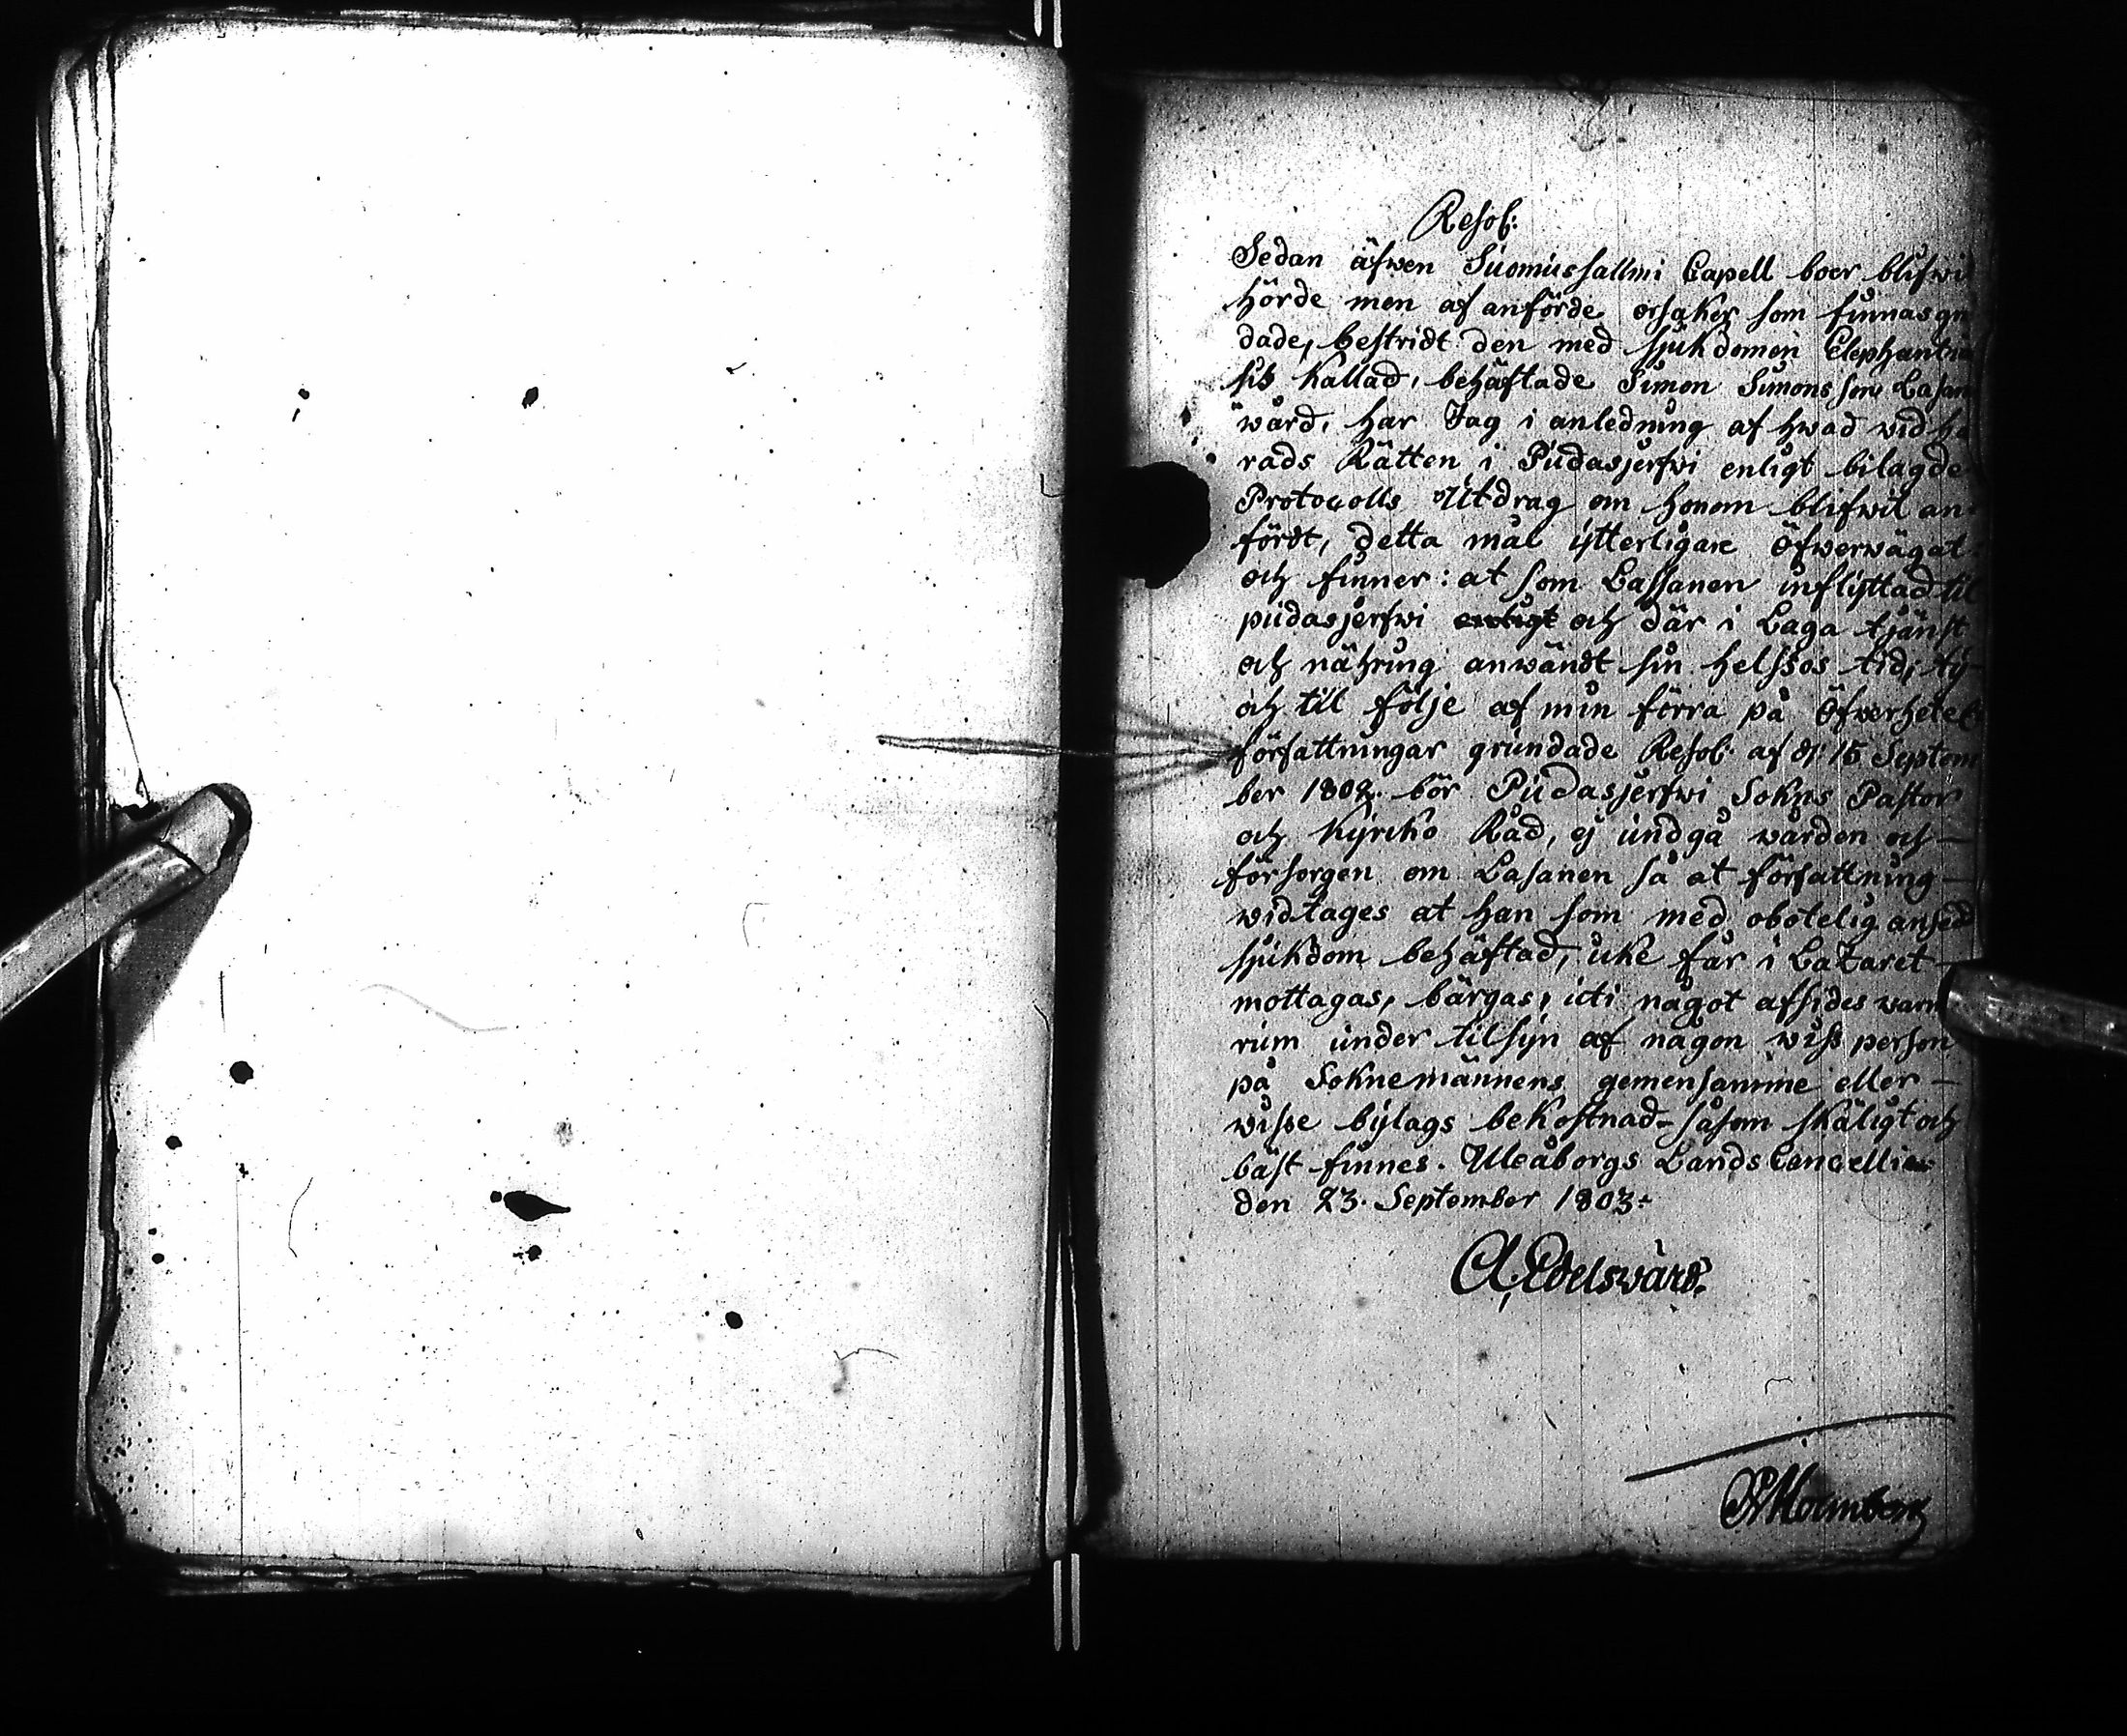 Resol:
Sedan äfwen Suomussallmi Capell boer blifwi
hörde men af anförde orsaker som finnas gru
dade, bestridt den med sjukdomen Elephantia
sis kallad, behäftade Simon Simonsson Lasan
wård, har Jag i anledning af hwad wid hä
rads Rätten i Pudasjerfwi enligt bilagde
Protocolls Utdrag om honom blifwit an-
fördt, detta mål ytterligare Öfwerwägat
och finner: at som Lassanen inflyttad til
pudasjerfwi enligt och där i Laga tjänst
och nähring anwändt sin helssos tid, ty
och til följe af min förra på Öfwerhetel:
författningar grundade Resol: af d: 15 Septem
ber 1802. bör Pudasjerfwi Sokns Pastor
och Kyrcko Råd, ej undgå wården och
försorgen om Lasanen så at författning
widtages at han som med obotelig ansedd
sjukdom behäftad, icke får i Lazaret
mottagas, bärgas, uti något afsides warm
rum under tilsyn af någon wiss person
på Soknemännens gemensamme eller
wisse bylags bekostnad såsom skäligt och
bäst finnes. Uleåborgs Lands Cancellie
den 23. September 1803.
A, Edelswärd.
Holmberg